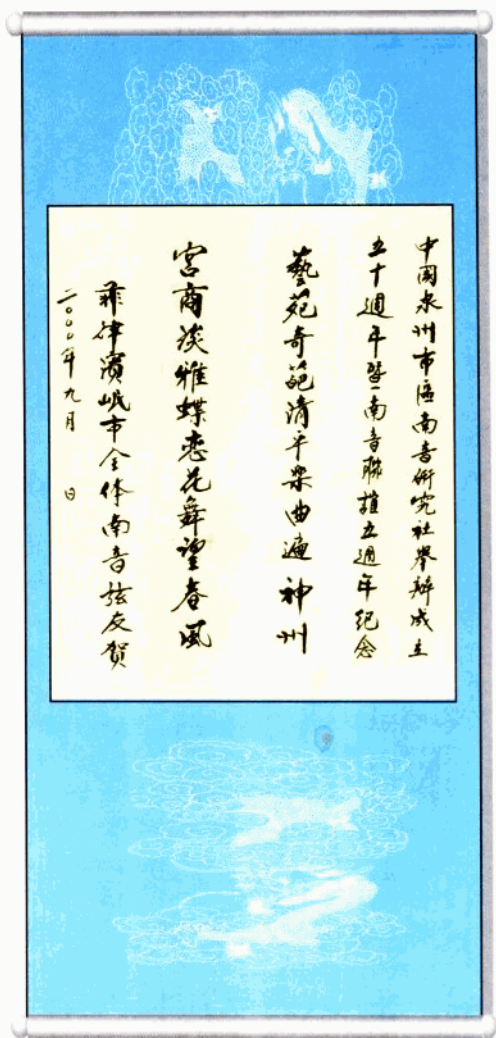 中國泉州市區南音研究社舉辦成立
五十週年暨南音聯誼五週年纪念
藝苑奇葩清平樂曲遍神州
宮商淡雅蝶恋花舞望春風
菲律濱岷市全体南音弦友賀
二〇〇〇年九月 日